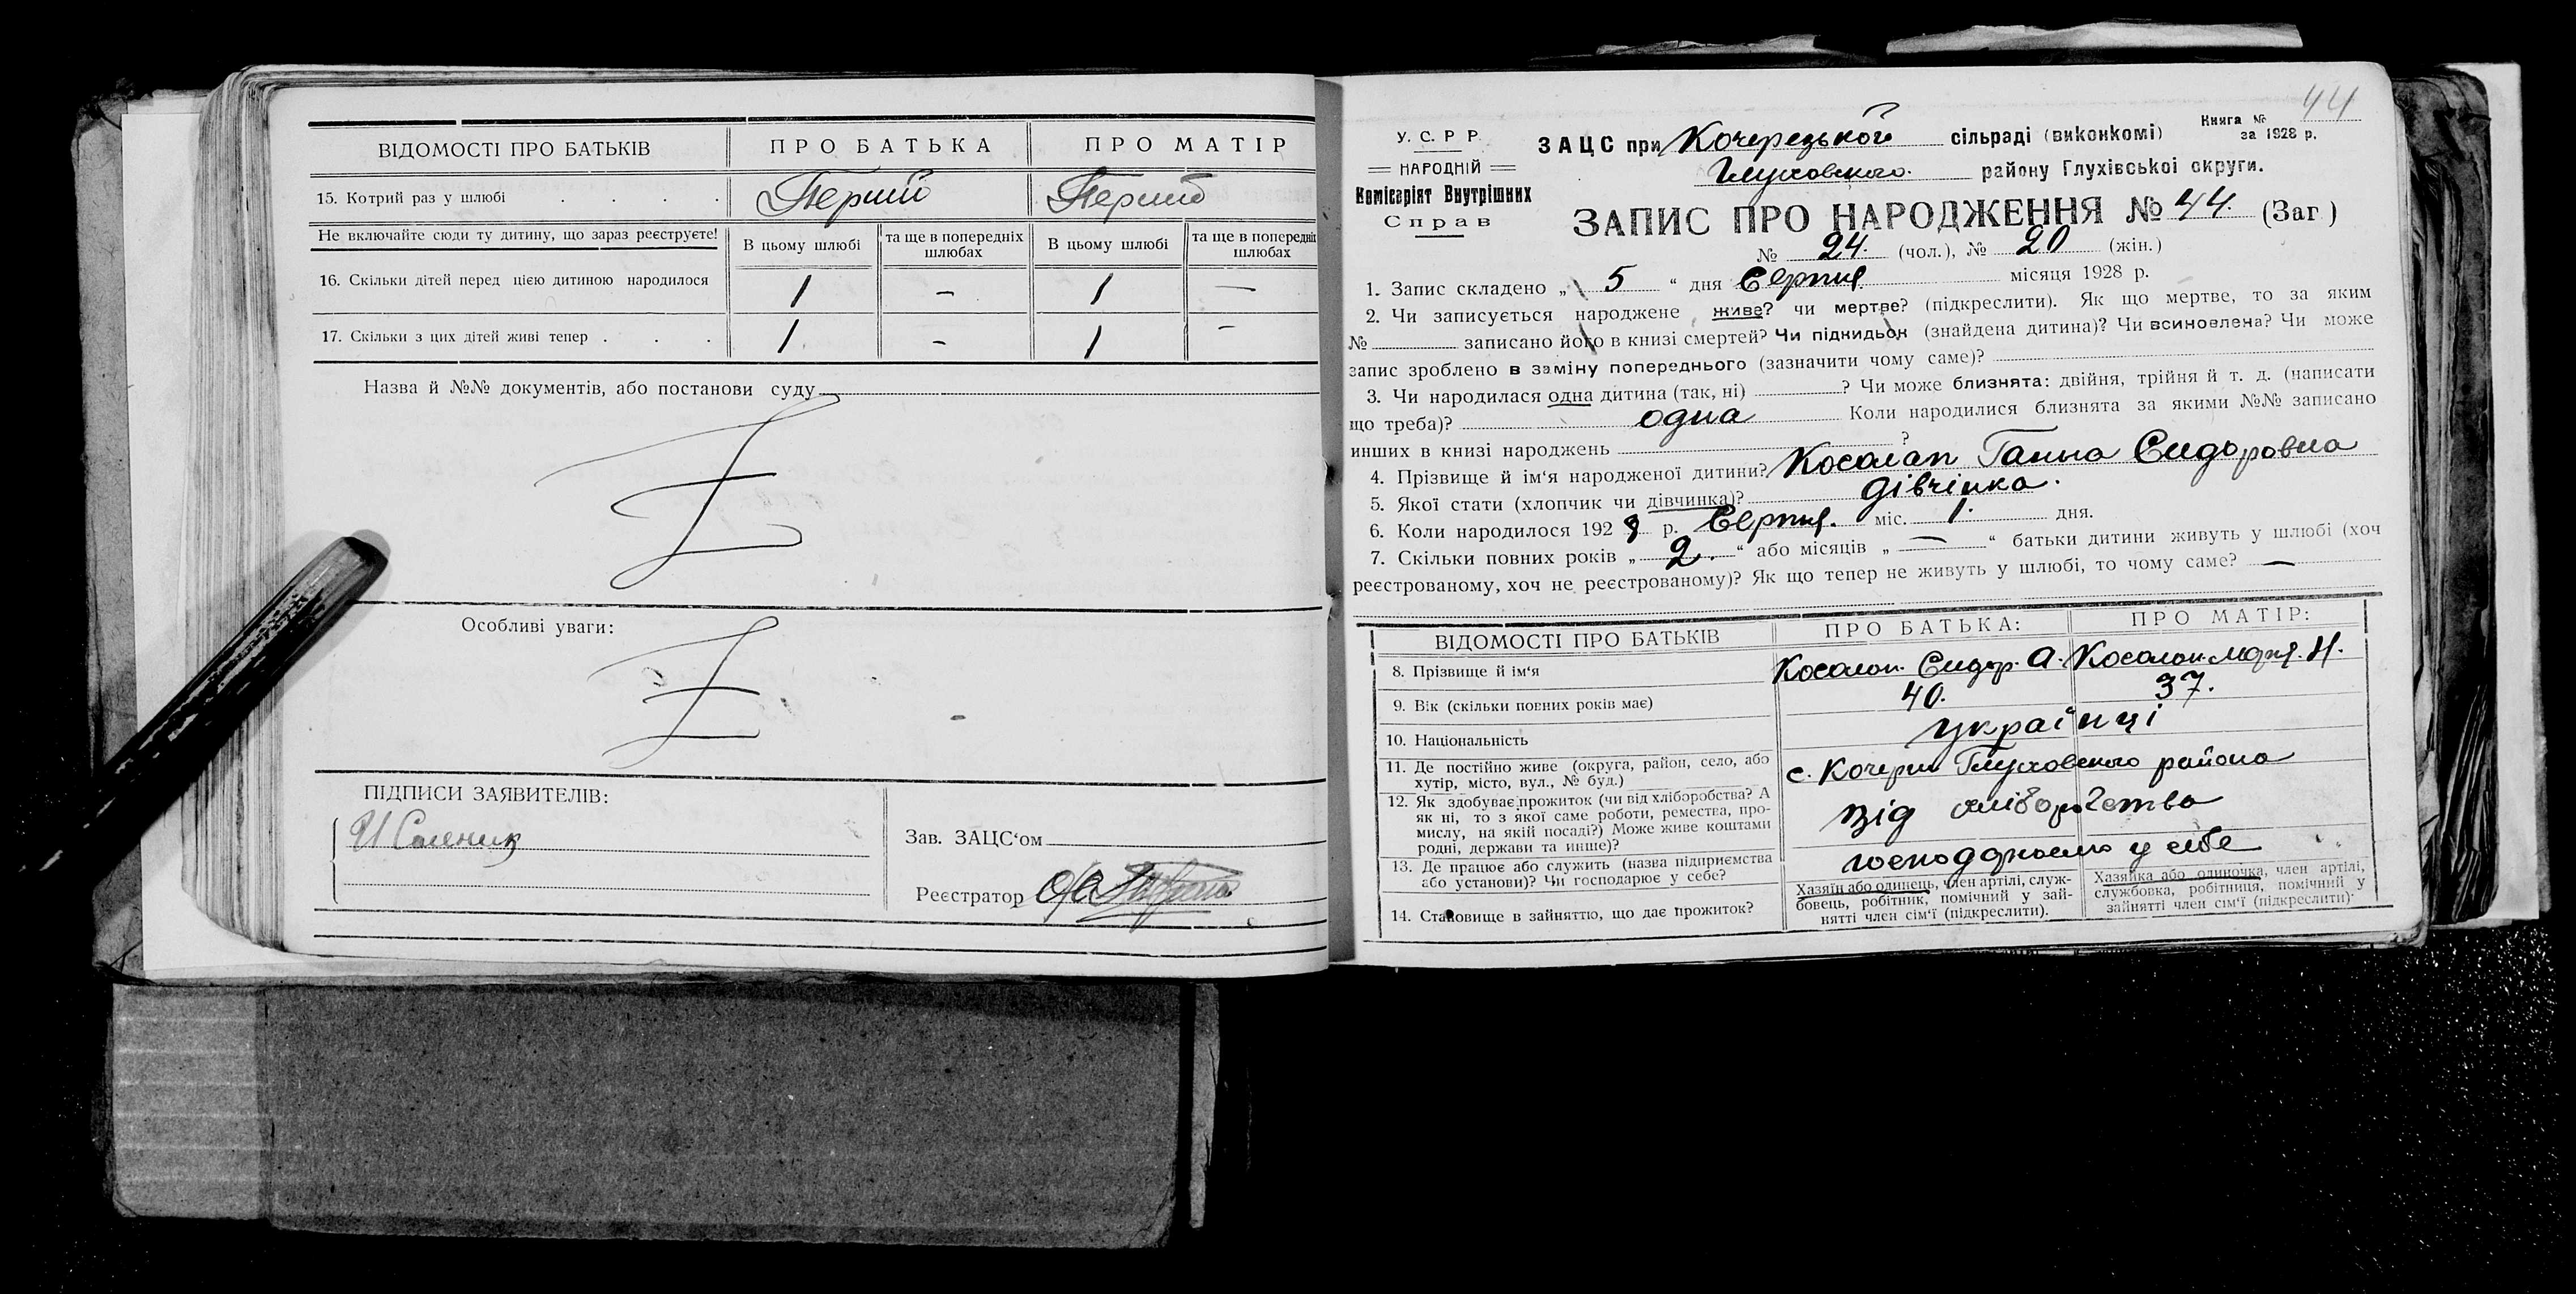 ВІДОМОСТІ ПРО БАТЬКІВ
ПРО БАТЬКА
ПРО МАТІР
15. Котрий раз у шлюбі . . . .
Перший
Перший
Не включайте сюди ту дитину, що зараз реєструєте!
В цьому шлюбі
та ще в попередніх шлюбах
В цьому шлюбі
та ще в попередніх шлюбах
16. Скільки дітей перед цією дитиною народилося
1 — 1 —
17. Скільки з цих дітей живі тепер . . .
1 - 1 -
Назва й №№ документів, або постанови суду
Особливі уваги:
ПІДПИСИ ЗАЯВИТЕЛІВ:
Зав. ЗАЦС'ом
Реєстратор
44
У. С. Р. Р.
НАРОДНІЙ
Комісаріят Внутрішних
Справ
ЗАЦС при Кочерецькой сільраді (виконкомі)
Книга №
за 1928 р.
Глуховського району Глухівської округи.
ЗАПИС ПРО НАРОДЖЕННЯ № 44. (Заг.)
№ 24. (чол.), № 20 (жін.)
1. Запис складено „ 5 “ дня Серпня місяця 1928 р.
2. Чи записується народжене живе? чи мертве? (підкреслити). Як що мертве, то за яким
№ записано його в книзі смертей? Чи підкидьок (знайдена дитина)? Чи всиновлена? Чи може
запис зроблено в заміну попереднього (зазначити чому саме)?
3. Чи народилася одна дитина (так, ні) ? Чи може близнята: двійня, трійня й т. д. (написати
що треба)? одна Коли народилися близнята за якими №№ записано
инших в книзі народжень ?
4. Прізвище й ім'я народженої дитини? Косолап Ганна Сидоровна
5. Якої стати (хлопчик чи дівчинка)? дівчінка.
6. Коли народилося 1928 р. Серпня. міс. 1. дня.
7. Скільки повних років „ 2. “ або місяців „ — “ батьки дитини живуть у шлюбі (хоч
реєстрованому, хоч не реєстрованому)? Як що тепер не живуть у шлюбі, то чому саме? —
ВІДОМОСТІ ПРО БАТЬКІВ
ПРО БАТЬКА:
ПРО МАТІР:
8. Прізвище й ім'я
Косолап. Сидор. А.
Косолап. Марія. Н.
9. Вік (скільки повних років має)
40.
37.
10. Національність
українці
11. Де постійно живе (округа, район, село, або
хутір, місто, вул., № буд.)
с. Кочерги Глуховського района
12. Як здобуває прожиток (чи від хліборобства? А
як ні, то з якої саме роботи, ремества, про-
мислу, на якій посаді?) Може живе коштами
родні, держави та инше)?
від хліборобства
13. Де працює або служить (назва підприємства
або установи)? Чи господарює у себе?
у себе
14. Становище в зайняттю, що дає прожиток?
Хазяїн або одинець, член артілі, служ-
бовець, робітник, помічний у зай-
нятті член сім'ї (підкреслити).
Хазяйка або одиночка, член артілі,
службовка, робітниця, помічний у
зайнятті член сім'ї (підкреслити).